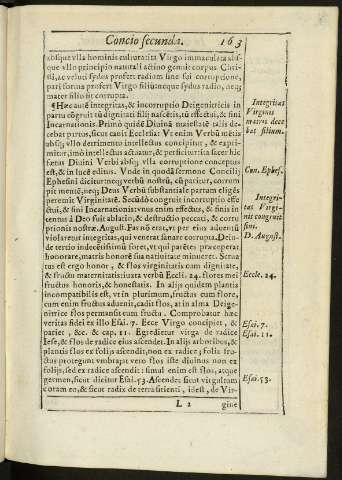 Concio secunda. 163
absque vlla hominis cultura ita Virgo immaculata abs
que vllo principio naturali actiuo genuit corpus Chri-
sti, ac veluti sydus profert radium sine sui corruptione,
pari forma profert Virgo filium: neque sydus radio, neq;
mater filio fit corrupta.
¶ Hæc autẽ integritas, & incorruptio Deigenitricis in
partu cõgruit tũ dignitati filij nascẽtis, tũ effectui, & fini
Incarnationis. Primò quidẽ Diuinã maiestatẽ talis de-
cebat partus, sicut canit Ecclesia: Vt enim Verbũ mẽtis
absq; vllo detrimento intellectus concipitur, & expri-
mitur, imò intellectus actuatur, & perficitur: ita facer hic
fœtus Diuini Verbi absq; vlla corruptione conceptus
est, & in lucẽ editus. Vnde in quodã sermone Concilij
Ephesini dicitur: neq; verbũ nostrũ, cũ paritur, corrum
pit mentẽ, neq; Deus Verbũ substantiale partum eligẽs
peremit Virginitatẽ. Secũdò congruit incorruptio effe
ctui, & fini Incarnationis: vnus enim effectus, & finis in
centus à Deo fuit ablatio, & destructio peccati, & corru
ptionis nostræ. August. Fas nõ erat, vt per eius aduentũ
violaretur integritas, qui venerat sanare corrupta. Dein-
de tertio indecẽtissimũ foret, vt qui parẽtes præceperat
honorare, matris honorẽ sua natiuitate minueret. Serua
tus est ergo honor, & flos virginitatis cum dignitate,
& fructu maternitatis iuxta verbũ Eccli. 24. flores mei
fructus honoris, & honestatis. In alijs quidem plantis
incompatibilis est, vt in plurimum, fructus cum flore,
cum enim fructus aduenit, cadit flos, at in alma Deige-
nitrice flos permansit cum fructu. Comprobatur hæc
veritas fidei ex illo Esai. 7. Ecce Virgo concipiet, &
pariet, &c. & cap. 11. Egredietur virga de radice
Iese, & flos de radice eius ascendet. In alijs arboribus, &
plantis flos ex folijs ascendit, non ex radice; folia fru-
ctus protegunt vmbra: at vero flos iste diuinus non ex
folijs, sed ex radice ascendit: simul enim est flos, atque
germen, sicut dicitur Esai. 53. Ascendet sicut virgultum
coram eo, & sicut radix de terra sitienti, idest, de Vir-
L 2 gine
Integritas
Virginis
matris dece
bat filium.
Con. Ephes.
Integri-
tas Virgi-
nis congruit
fini.
D. August.
Eccle. 24.
Esai. 7.
Esai. 11.
Esai. 53.